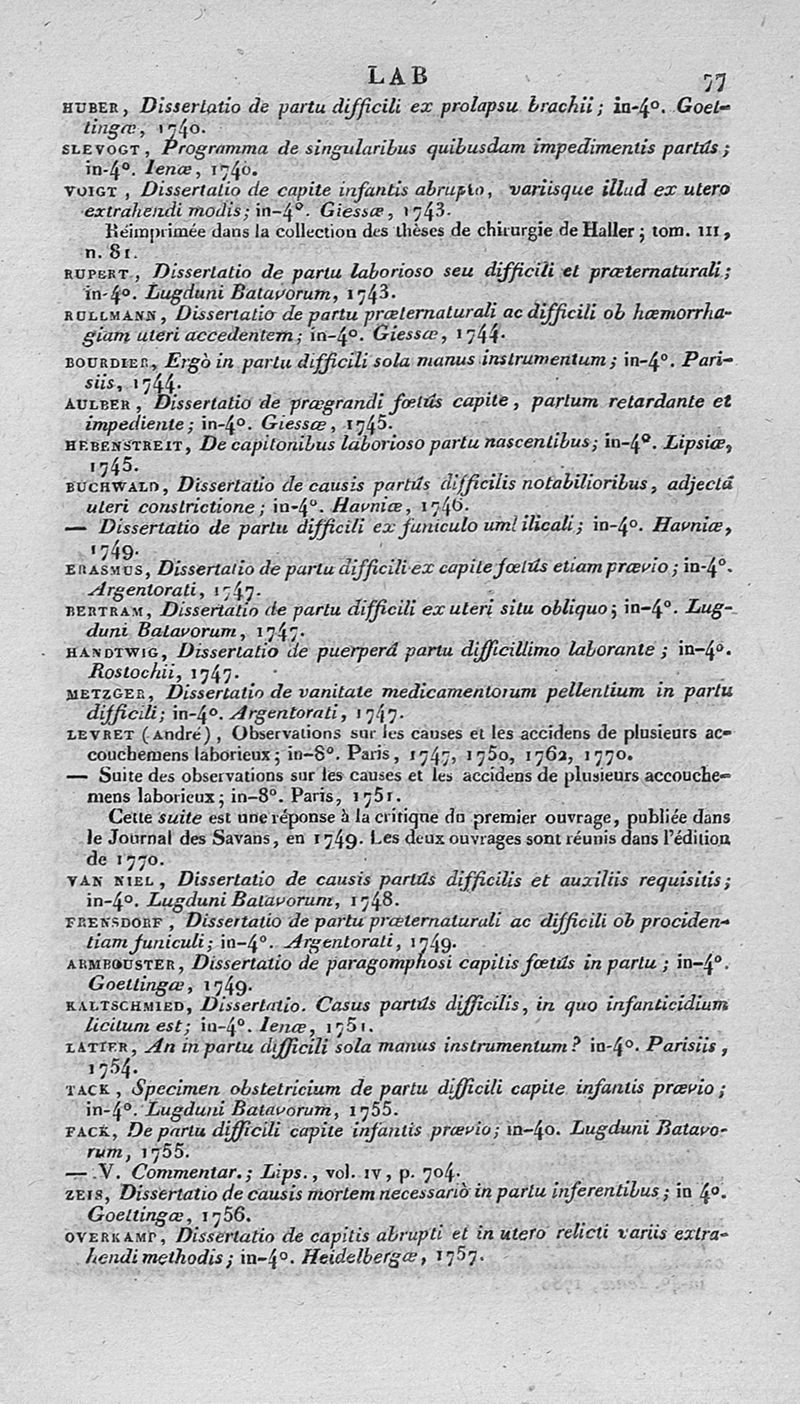 LAB 77
HUBER, Dissertatio de partu difficili ex prolapsu brachii; in-4°. Goet-
tingæ, 1740.
SLEVOGT, Programma de singularibus quibusdam impedimentis partûs;
in-4°. Ienæ, 1740.
VOIGT, Dissertatio de capite infantis abrupto, variisque illud ex utero
extrahendi modis; in-4°. Giessæ, 1743.
Réimprimée dans la collection des thèses de chirurgie de Haller; tom. III,
n. 81.
RUPERT, Dissertatio de partu laborioso seu difficili et præternaturali;
in-4°. Lugduni Batavorum, 1743.
RULLMANN, Dissertatio de partu præternaturali ac difficili ob hæmorrha-
giam uteri accedentem; in-4°. Giessæ, 1744.
BOURDIER, Ergò in partu difficili sola manus instrumentum; in-4°. Pari-
siis, 1744.
AULBER, Dissertatio de prægrandi fœtûs capite, partum retardante et
impediente; in-4°. Giessæ, 1745.
HEBENSTREIT, De capitonibus laborioso partu nascentibus; in-4°. Lipsiæ,
1745.
BUCHWALD, Dissertatio de causis partûs difficilis notabilioribus, adjectâ
uteri constrictione; in-4°. Havniæ, 1746.
— Dissertatio de partu difficili ex funiculo umbilicali; in-4°. Havniæ,
1749.
ERASMUS, Dissertatio de partu difficili ex capite fœtûs etiam prævio; in-4°.
Argentorati, 1747.
BERTRAM, Dissertatio de partu difficili ex uteri situ obliquo; in-4°. Lug-
duni Batavorum, 1747.
HANDTWIG, Dissertatio de puerperâ partu difficillimo laborante; in-4°.
Rostochii, 1747.
METZGER, Dissertatio de vanitate medicamentorum pellentium in partu
difficili; in-4°. Argentorati, 1747.
LEVRET (André), Observations sur les causes et les accidens de plusieurs ac-
couchemens laborieux; in-8°. Paris, 1747, 1750, 1762, 1770.
— Suite des observations sur les causes et les accidens de plusieurs accouche-
mens laborieux; in-8°. Paris, 1751.
Cette suite est une réponse à la critique du premier ouvrage, publiée dans
le Journal des Savans, en 1749. Les deux ouvrages sont réunis dans l'édition
de 1770.
VAN NIEL, Dissertatio de causis partûs difficilis et auxiliis requisitis;
in-4°. Lugduni Batavorum, 1748.
FRENSDORF, Dissertatio de partu præternaturali ac difficili ob prociden-
tiam funiculi; in-4°. Argentorati, 1749.
ARMBRUSTER, Dissertatio de paragomphosi capitis fœtûs in partu; in-4°.
Goettingæ, 1749.
KALTSCHMIED, Dissertatio. Casus partûs difficilis, in quo infanticidium
licitum est; in-4°. Ienæ, 1751.
LATIER, An in partu difficili sola manus instrumentum? in-4°. Parisiis,
1754.
TACK, Specimen obstetricium de partu difficili capite infantis prævio;
in-4°. Lugduni Batavorum, 1755.
FACK, De partu difficili capite infantis prævio; in-4o. Lugduni Batavo-
rum, 1755.
— V. Commentar.; Lips., vol. IV, p. 704.
ZEIS, Dissertatio de causis mortem necessariò in partu inferentibus; in 4°.
Goettingæ, 1756.
OVERKAMP, Dissertatio de capitis abrupti et in utero relicti variis extra-
hendi methodis; in-4°. Heidelbergæ, 1757.